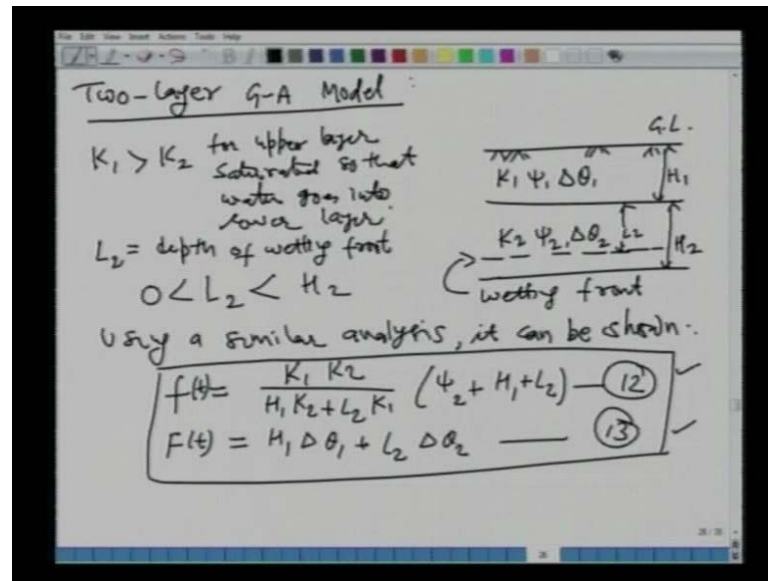 File Edit View Insert Actions Tools Help
Two-layer G-A Model :
K₁ > K₂ for upper layer
saturated so that
water goes into
lower layer.
L₂ = depth of wetting front
0 < L₂ < H₂
G.L.
K₁ Ψ₁ Δθ₁
H₁
K₂ Ψ₂, Δθ₂
L₂
H₂
wetting front
Using a similar analysis, it can be shown:
f(t) = K₁ K₂ / (H₁ K₂ + L₂ K₁) (Ψ₂ + H₁ + L₂) — (12)
F(t) = H₁ Δθ₁ + L₂ Δθ₂ — (13)
26